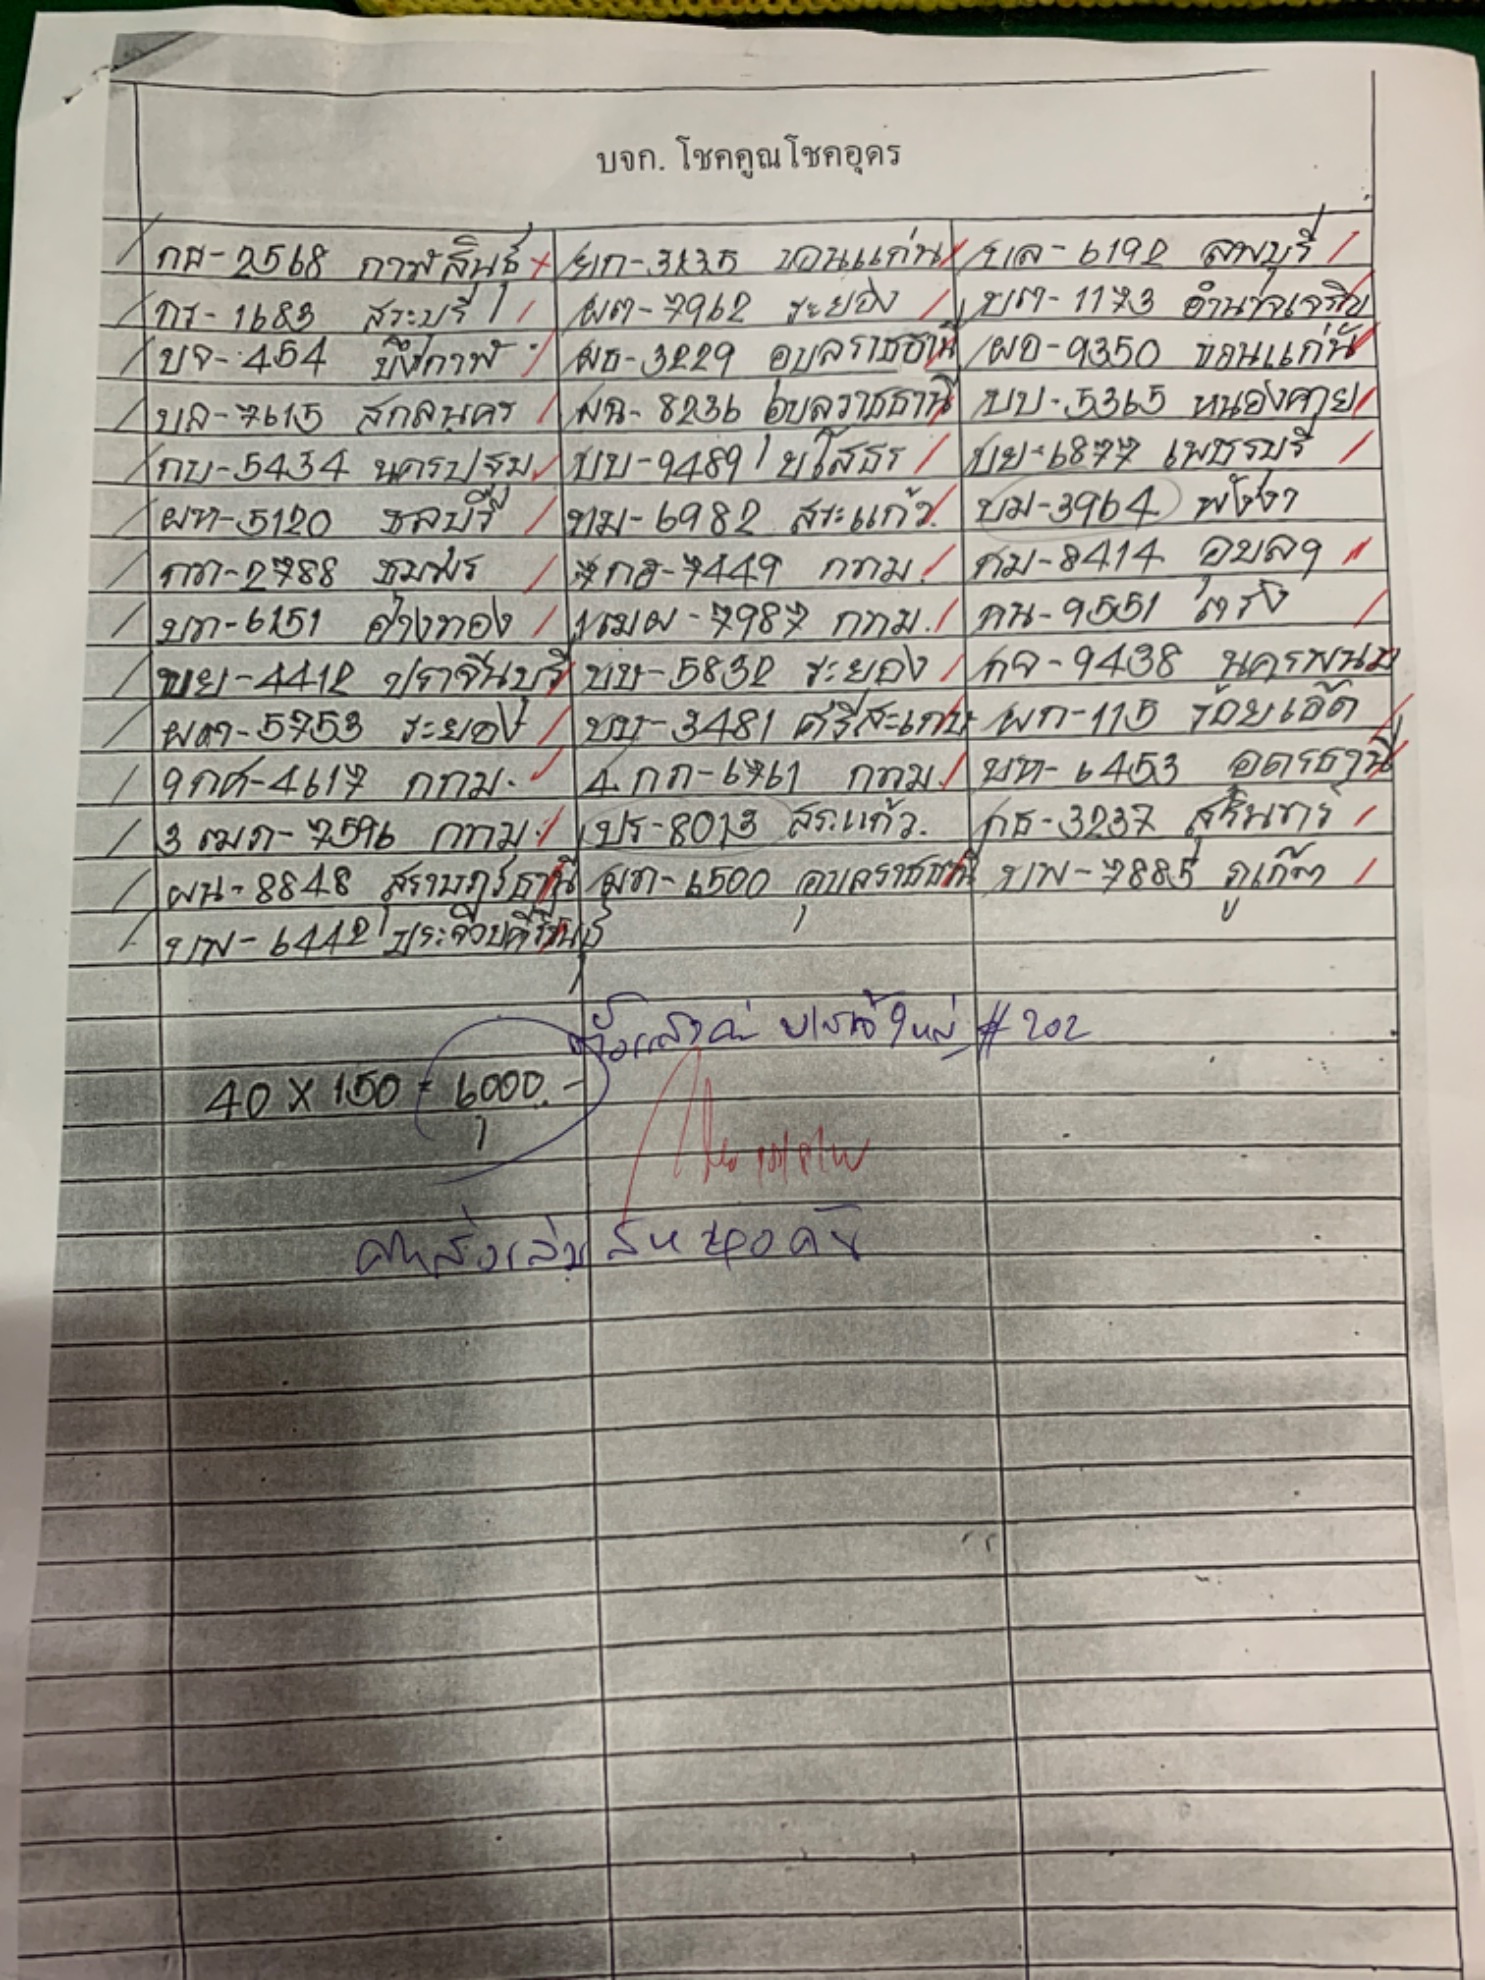 บจก. โชคคูณโชคอุดร
กส-2568 กาฬสินธุ์ ยก-3235 ขอนแก่น บล-6192 ลพบุรี
กร-1683 สระบุรี ผต-7962 ระยอง บต-1173 อำนาจเจริญ
บจ-454 บึงกาฬ ผธ-3229 อุบลราชธานี ผอ-9350 ขอนแก่น
บล-7615 สกลนคร ผฉ-8236 อุบลราชธานี บป-5365 หนองคาย
กบ-5434 นครปฐม บบ-9489 ยโสธร บย-6877 เพชรบุรี
ผท-5120 ชลบุรี ทม-6982 สระแก้ว บม-3964 พังงา
กท-2788 ชุมพร 7กอ-7449 กทม. กม-8414 อุบลฯ
บท-6151 อ่างทอง 1ฒผ-7987 กทม. กน-9551 ตรัง
ขย-4412 ปราจีนบุรี บษ-5832 ระยอง กจ-9438 นครพนม
ผต-5753 ระยอง บบ-3481 ศรีสะเกษ ผก-115 ร้อยเอ็ด
9กศ-4617 กทม. 4กถ-6761 กทม. บห-6453 อุดรธานี
3ฒภ-7596 กทม. ปร-8013 สระแก้ว กธ-3237 สุรินทร์
ผน-8848 สุราษฎร์ธานี ผท-6500 อุบลราชธานี บพ-7885 ภูเก็ต
บพ-6442 ประจวบคีรีขันธ์
#202
40 X 150 = 6000.-